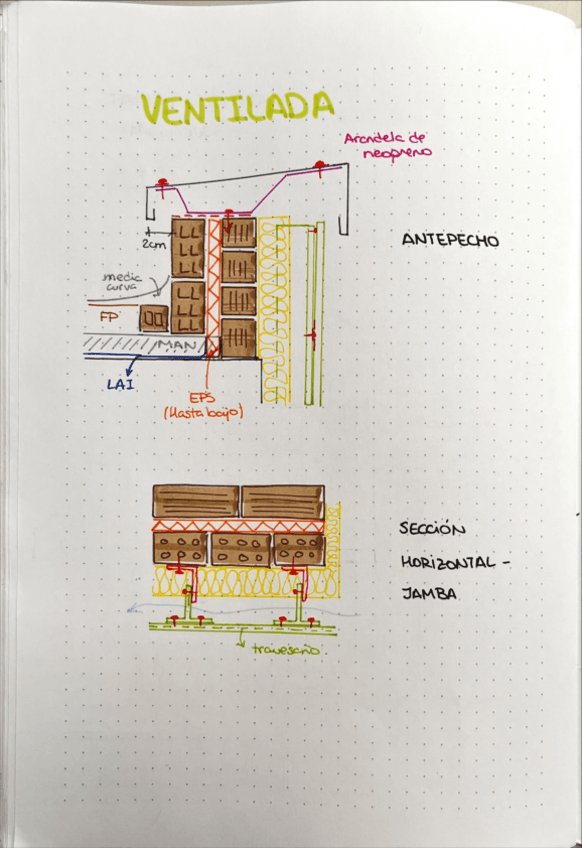 VENTILADA
Arandela de
neopreno
ANTEPECHO
2cm
media
curva
FP
MAN
LAI
EPS
(Hasta bajo)
SECCIÓN
HORIZONTAL -
JAMBA
travesaño.